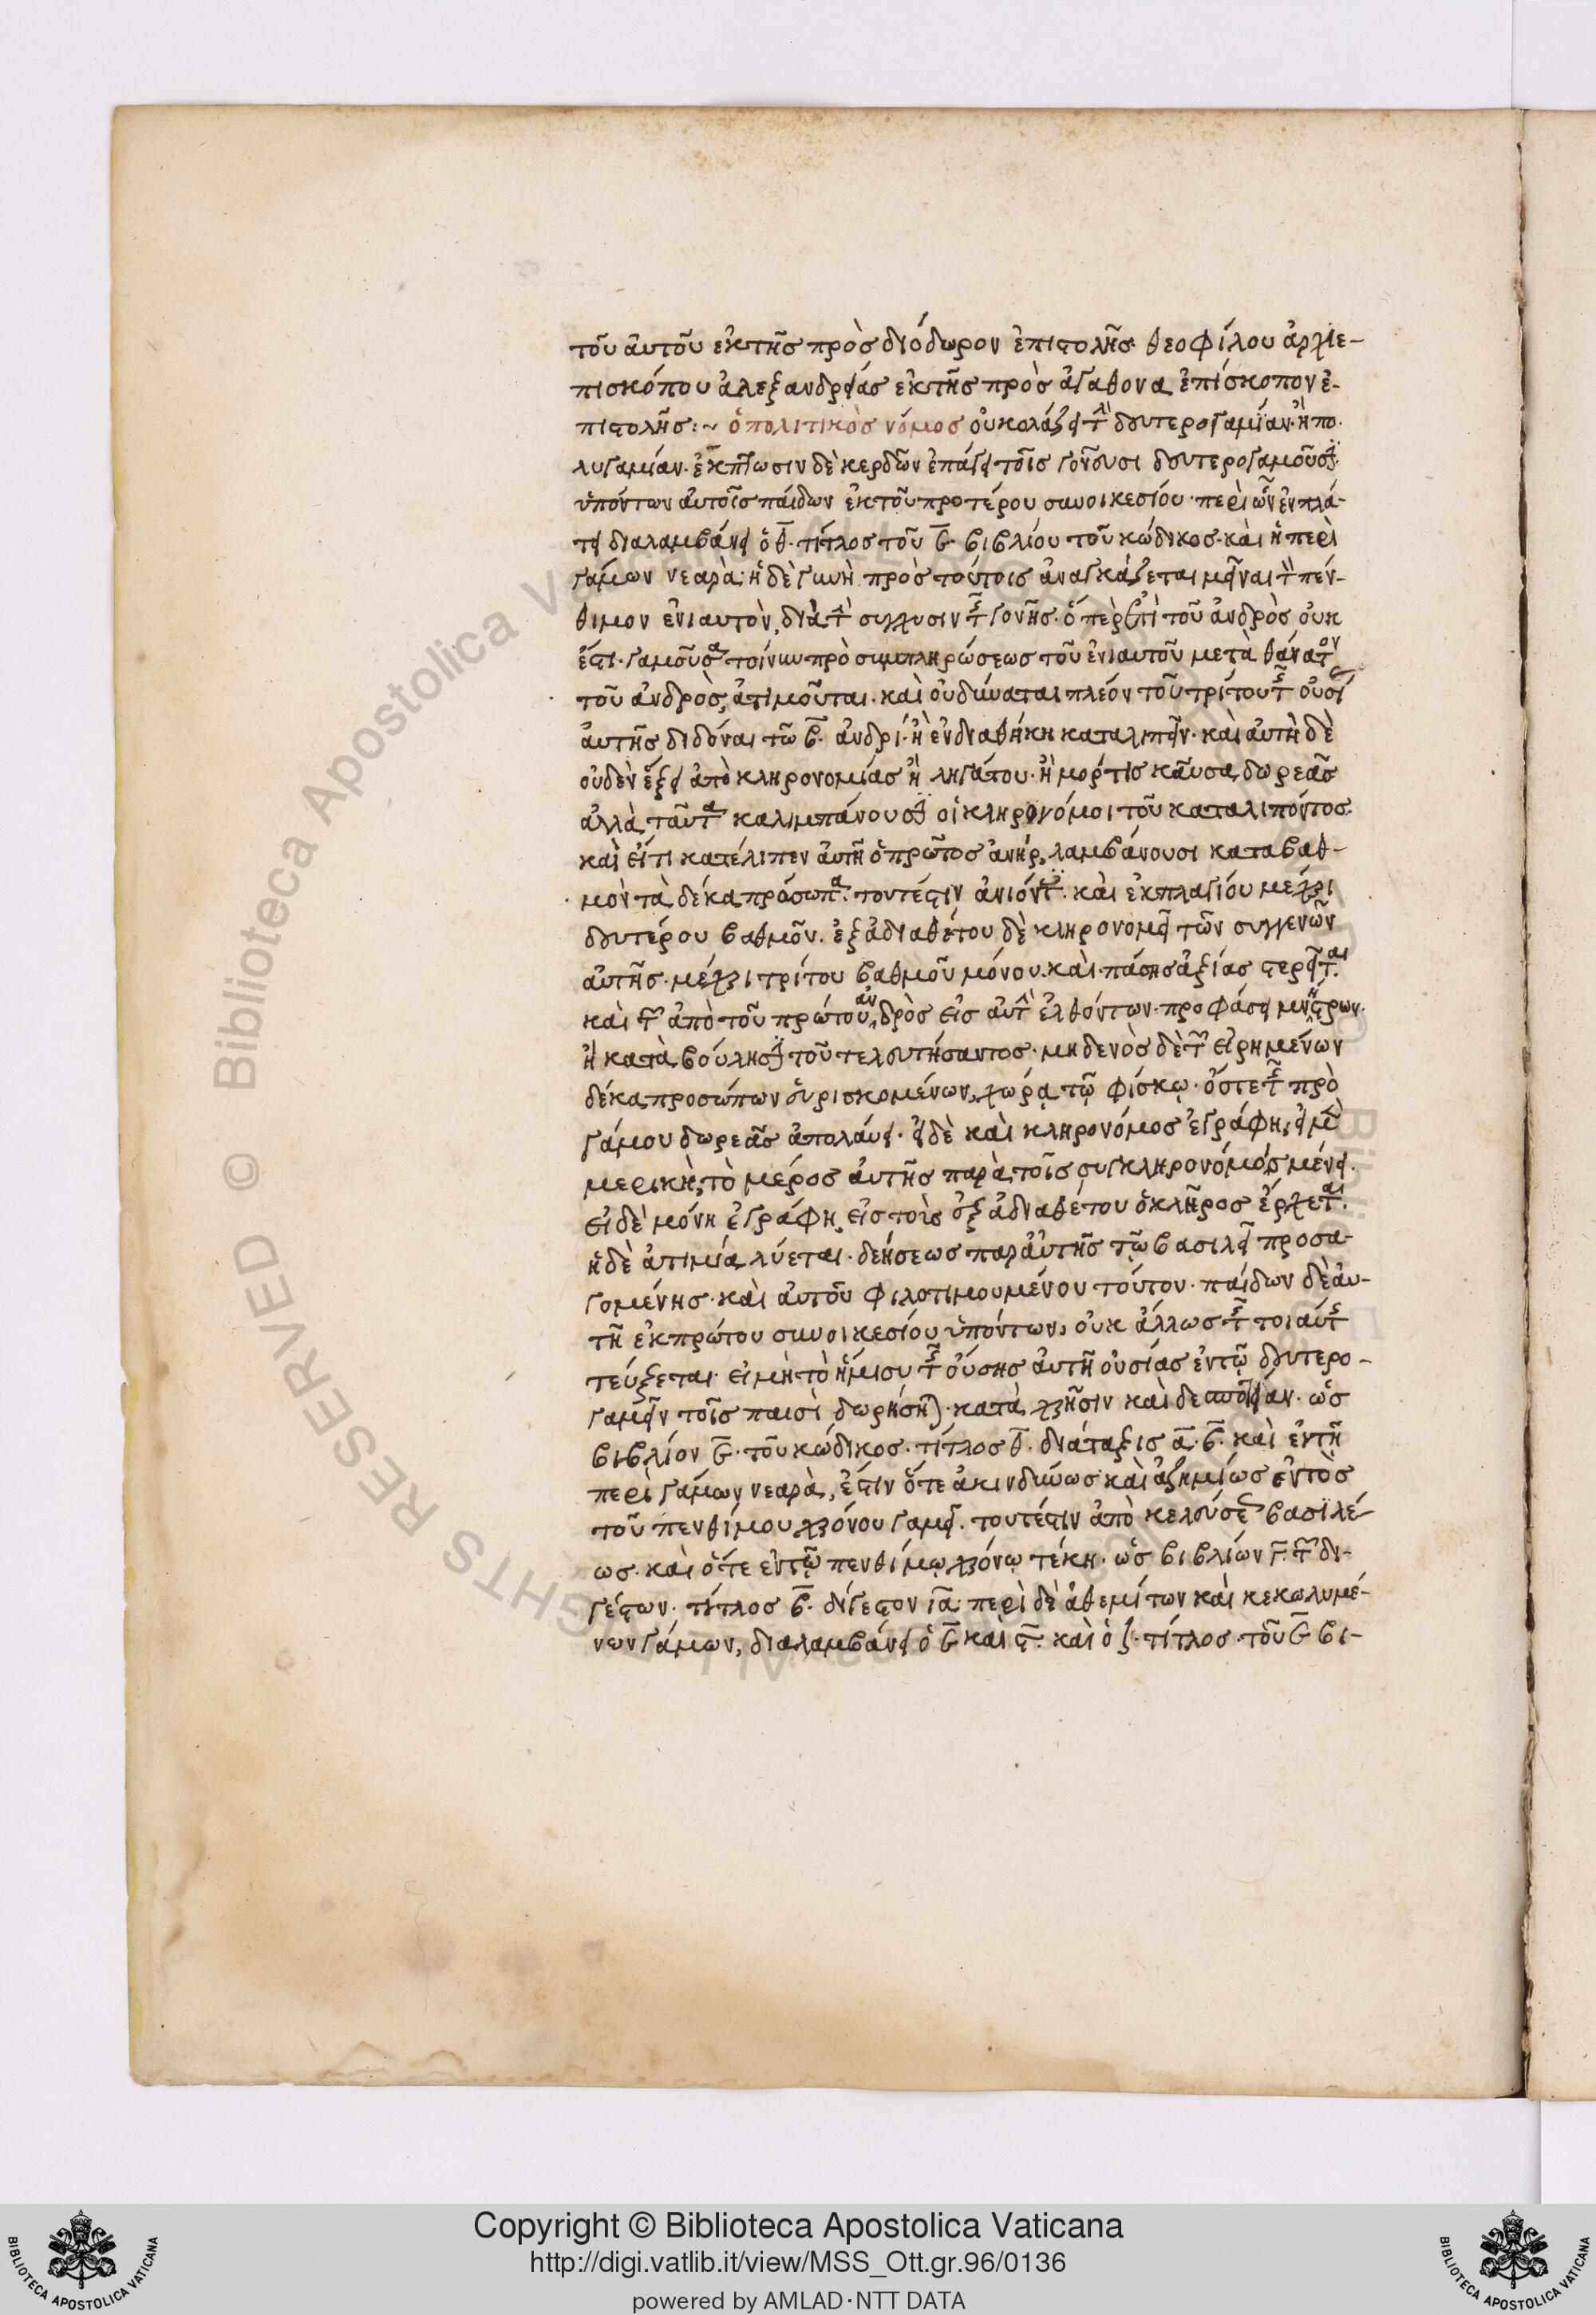 τοῦ αὐτοῦ ἐκ τῆς πρὸς διόδωρον ἐπιστολῆς θεοφίλου ἀρχιε-
πισκόπου ἀλεξανδρείας ἐκ τῆς πρὸς ἀγάθονα ἐπίσκοπον ἐ-
πιστολῆς :~ ὁ πολιτικὸς νόμος οὐ κολάζει τὴν δευτερογαμίαν. ἢ πο-
λυγαμίαν. ἔκπτωσιν δὲ κερδῶν ἐπάγει τοῖς γονεῦσι δευτερογαμοῦσιν.
ὑπόντων αὐτοῖς παίδων ἐκ τοῦ προτέρου συνοικεσίου. περὶ ὧν ἐν πλά-
τει διαλαμβάνει ὁ θ. τίτλος τοῦ ε. βιβλίου τοῦ κώδικος. καὶ ἡ περὶ
γάμων νεαρά. ἡ δὲ γυνὴ πρὸς τούτοις ἀναγκάζεται μεῖναι τὸν πέν-
θιμον ἐνιαυτὸν, διὰ τὴν σύγχυσιν τῆς γονῆς. ὅπερ ἐπὶ τοῦ ἀνδρὸς οὐκ
ἔστι. γαμοῦσα τοίνυν πρὸ συμπληρώσεως τοῦ ἐνιαυτοῦ μετὰ θάνατον
τοῦ ἀνδρὸς, ἀτιμοῦται. καὶ οὐ δύναται πλέον τοῦ τρίτου τῆς οὐσίας
αὐτῆς διδόναι τῶ β. ἀνδρί. ἢ ἐν διαθήκη καταλιπεῖν. καὶ αὐτὴ δὲ
οὐδὲν ἕξει ἀπὸ κληρονομίας ἢ ληγάτου. ἢ μόρτις καῦσα δωρεᾶς
ἀλλὰ ταῦτα καλιμπάνουσιν οἱ κληρονόμοι τοῦ καταλιπόντος.
καὶ εἴ τι κατέλιπεν αὐτῆ ὁ πρῶτος ἀνήρ, λαμβάνουσι κατὰ βαθ-
μὸν τὰ δέκα πρόσωπα. τουτέστιν ἀνιόντες. καὶ ἐκ πλαγίου μέχρι
δευτέρου βαθμοῦ. ἐξ ἀδιαθέτου δὲ κληρονομεῖ τῶν συγγενῶν
αὐτῆς. μέχρι τρίτου βαθμοῦ μόνου. καὶ πάσης ἀξίας στερεῖται.
καὶ τῶν ἀπὸ τοῦ πρώτου ἀνδρὸς εἰς αὐτὴν ἐλθόντων. προφάσει μνήστρων.
ἢ κατὰ βούλησιν τοῦ τελευτήσαντος. μηδενὸς δὲ τῶν εἰρημένων
δέκα προσώπων εὑρισκομένων, χώρα τῷ φίσκῳ. ὅστε τῆς πρὸ
γάμου δωρεᾶς ἀπολαύει. εἰ δὲ καὶ κληρονόμος ἐγράφη, εἰ μὲν
μερικὴ, τὸ μέρος αὐτῆς παρὰ τοῖς συγκληρονόμοις μένει.
εἰ δὲ μόνη ἐγράφη, εἰς τοὺς ἐξ ἀδιαθέτου ὁ κλῆρος ἔρχεται.
ἡ δὲ ἀτιμία λύεται. δεήσεως παρ αὐτῆς τῷ βασιλεῖ προσα-
γομένης. καὶ αὐτοῦ φιλοτιμουμένου τοῦτον. παίδων δὲ αὐ-
τῆ ἐκ πρώτου συνοικεσίου ὑπόντων, οὐκ ἄλλως τῆς τοιαύτης
τεύξεται. εἰ μὴ τὸ ἥμισυ τῆς οὔσης αὐτῆ οὐσίας ἐν τῷ δευτερο-
γαμεῖν τοῖς παισὶ δωρήσηται. κατὰ χρῆσιν καὶ δεσποτείαν. ὡς
βιβλίον ε. τοῦ κώδικος. τίτλος θ. διάταξις α. β. καὶ ἐν τῇ
περὶ γάμων νεαρά, ἔστιν ὅτε ἀκινδύνως καὶ ἀζημίως ἐντὸς
τοῦ πενθίμου χρόνου γαμεῖ. τουτέστιν ἀπὸ κελεύσεως βασιλέ-
ως. καὶ ὅτε ἐν τῷ πενθίμῳ χρόνῳ τέκη. ὡς βιβλίων γ. τῶν δι-
γέστων. τίτλος β. δίγεστον ια. περὶ δὲ ἀθεμίτων καὶ κεκωλυμέ-
νων γάμων, διαλαμβάνει ὁ ε καὶ ϛ. καὶ ὁ ζ. τίτλος. τοῦ ε βι-
Copyright © Biblioteca Apostolica Vaticana
http://digi.vatlib.it/view/MSS_Ott.gr.96/0136
powered by AMLAD·NTT DATA
BIBLIOTECA APOSTOLICA VATICANA
BIBLIOTECA APOSTOLICA VATICANA